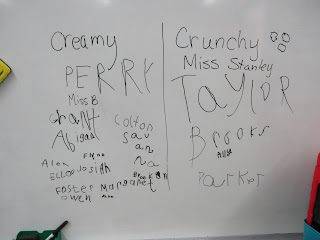 Creamy
PERRY
Miss B
Grant Colton
Abigail Savanna
Alex
Ellose Josiah
Foster Margaret
Owen
Crunchy
Miss Stanley
TaYlOR
Brooks
Parker